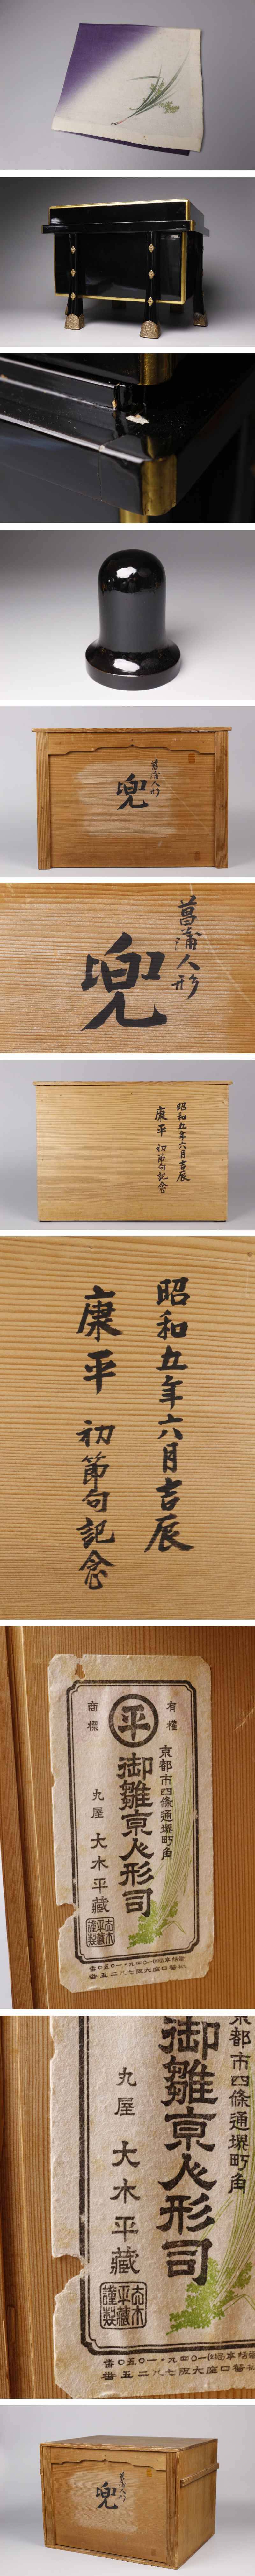 菖蒲人形
兜
菖蒲人形
兜
昭和五年六月吉辰
康平 初節句記念
昭和五年六月吉辰
康平 初節句記念
商標
平
有權
京都市四條通堺町角
御雛京人形司
丸屋 大木平藏
大木平藏謹製
都市四條通堺町角
御雛京人形司
丸屋 大木平藏
大木平藏謹製
菖蒲人形
兜